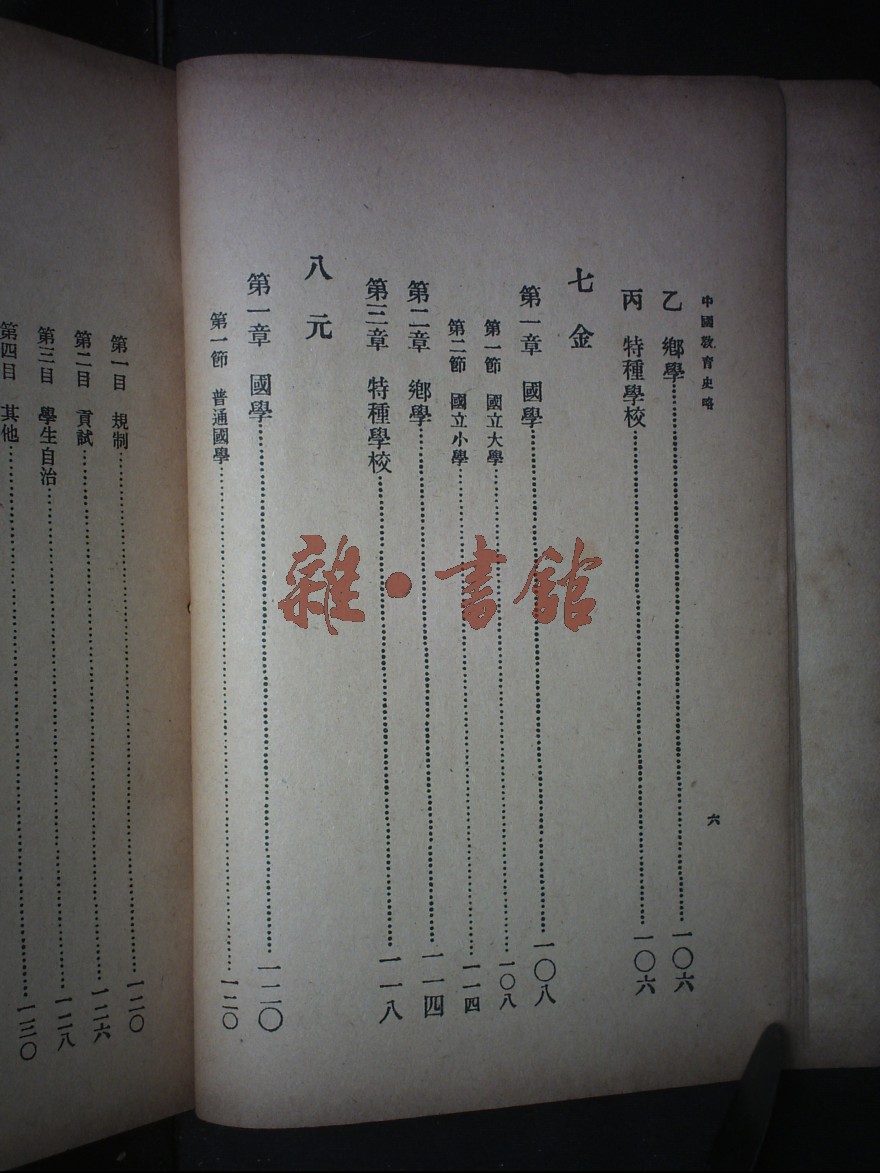 中國教育史略
六
乙 鄉學 一〇六
丙 特種學校 一〇六
七 金
第一章 國學 一〇八
第一節 國立大學 一〇八
第二節 國立小學 一一四
第二章 鄉學 一一四
第三章 特種學校 一一八
八 元
第一章 國學 一二〇
第一節 普通國學 一二〇
第一目 規制 一二〇
第二目 貢試 一二六
第三目 學生自治 一二八
第四目 其他 一三〇
雜·書館